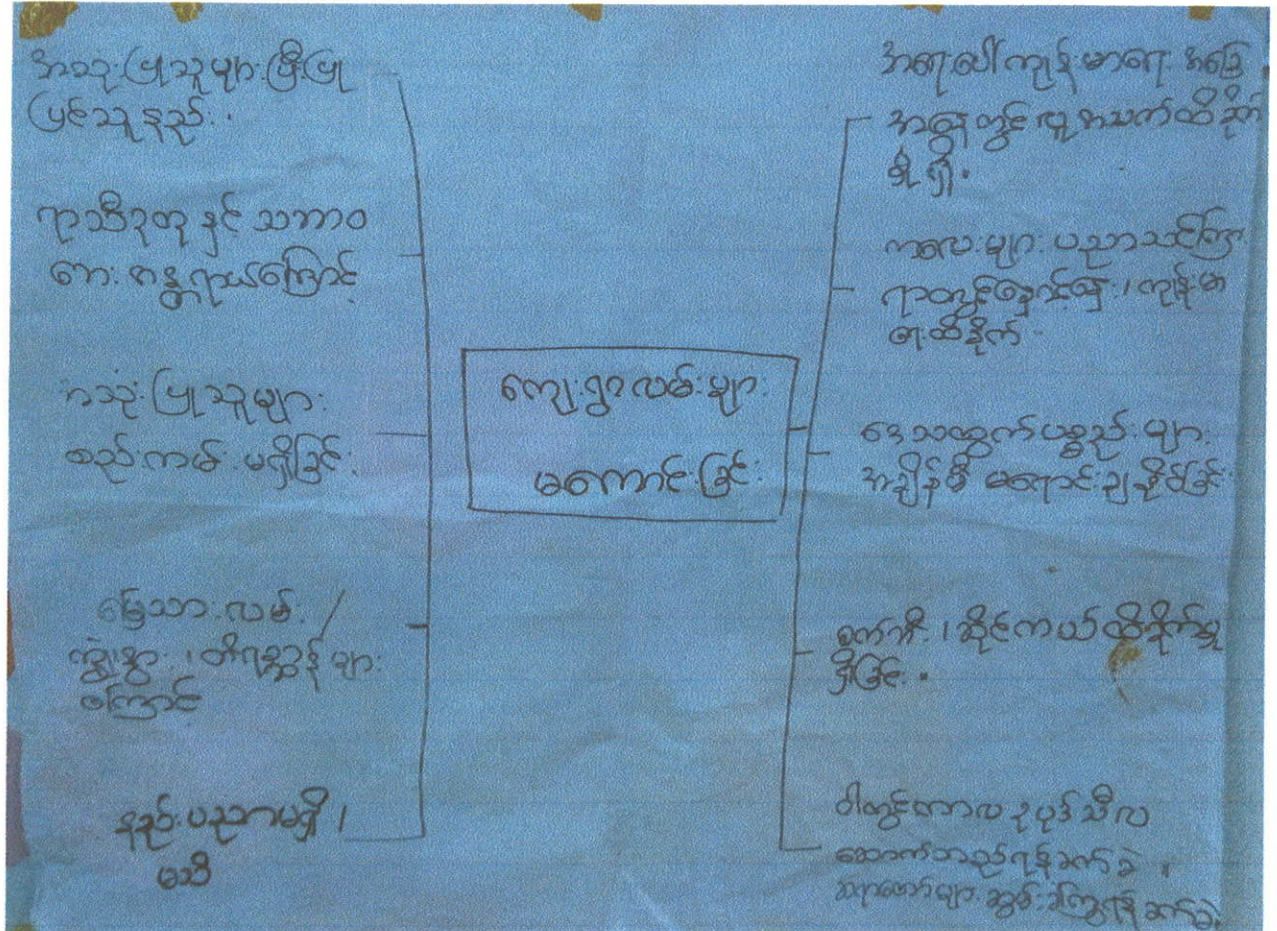 အသုံးပြုသူများပြီးပြု
ပြင်သူနည်း။
ရာသီဥတုနှင့် သဘာဝ
ဘေးအန္တရာယ်ကြောင့်
အသုံးပြုသူများ
စည်းကမ်းမရှိခြင်း
မြေသားလမ်း
ကျွဲ၊ နွား၊ တိရစ္ဆာန်များ
ကြောင့်
နည်းပညာမရှိ၊
မသိ
ကျေးရွာလမ်းများ
မကောင်းခြင်း
အရေးပေါ်ကျန်းမာရေး အခြေ
အနေတွင် လူ့အသက်ထိခိုက်
မှုရှိ။
ကလေးများ ပညာသင်ကြား
ရာတွင်နှောင့်နှေး၊ ကျန်းမာ
ရေးထိခိုက်
ဒေသထွက်ပစ္စည်းများ
အချိန်မီ မရောင်းချနိုင်ခြင်း
စက်ဘီး၊ ဆိုင်ကယ်ထိခိုက်မှု
ရှိခြင်း။
ဝါတွင်းကာလ ဥပုဒ်သီလ
ဆောက်တည်ရန်ခက်ခဲ၊
ဆရာတော်များ ဆွမ်းခံကြွရန် ခက်ခဲ